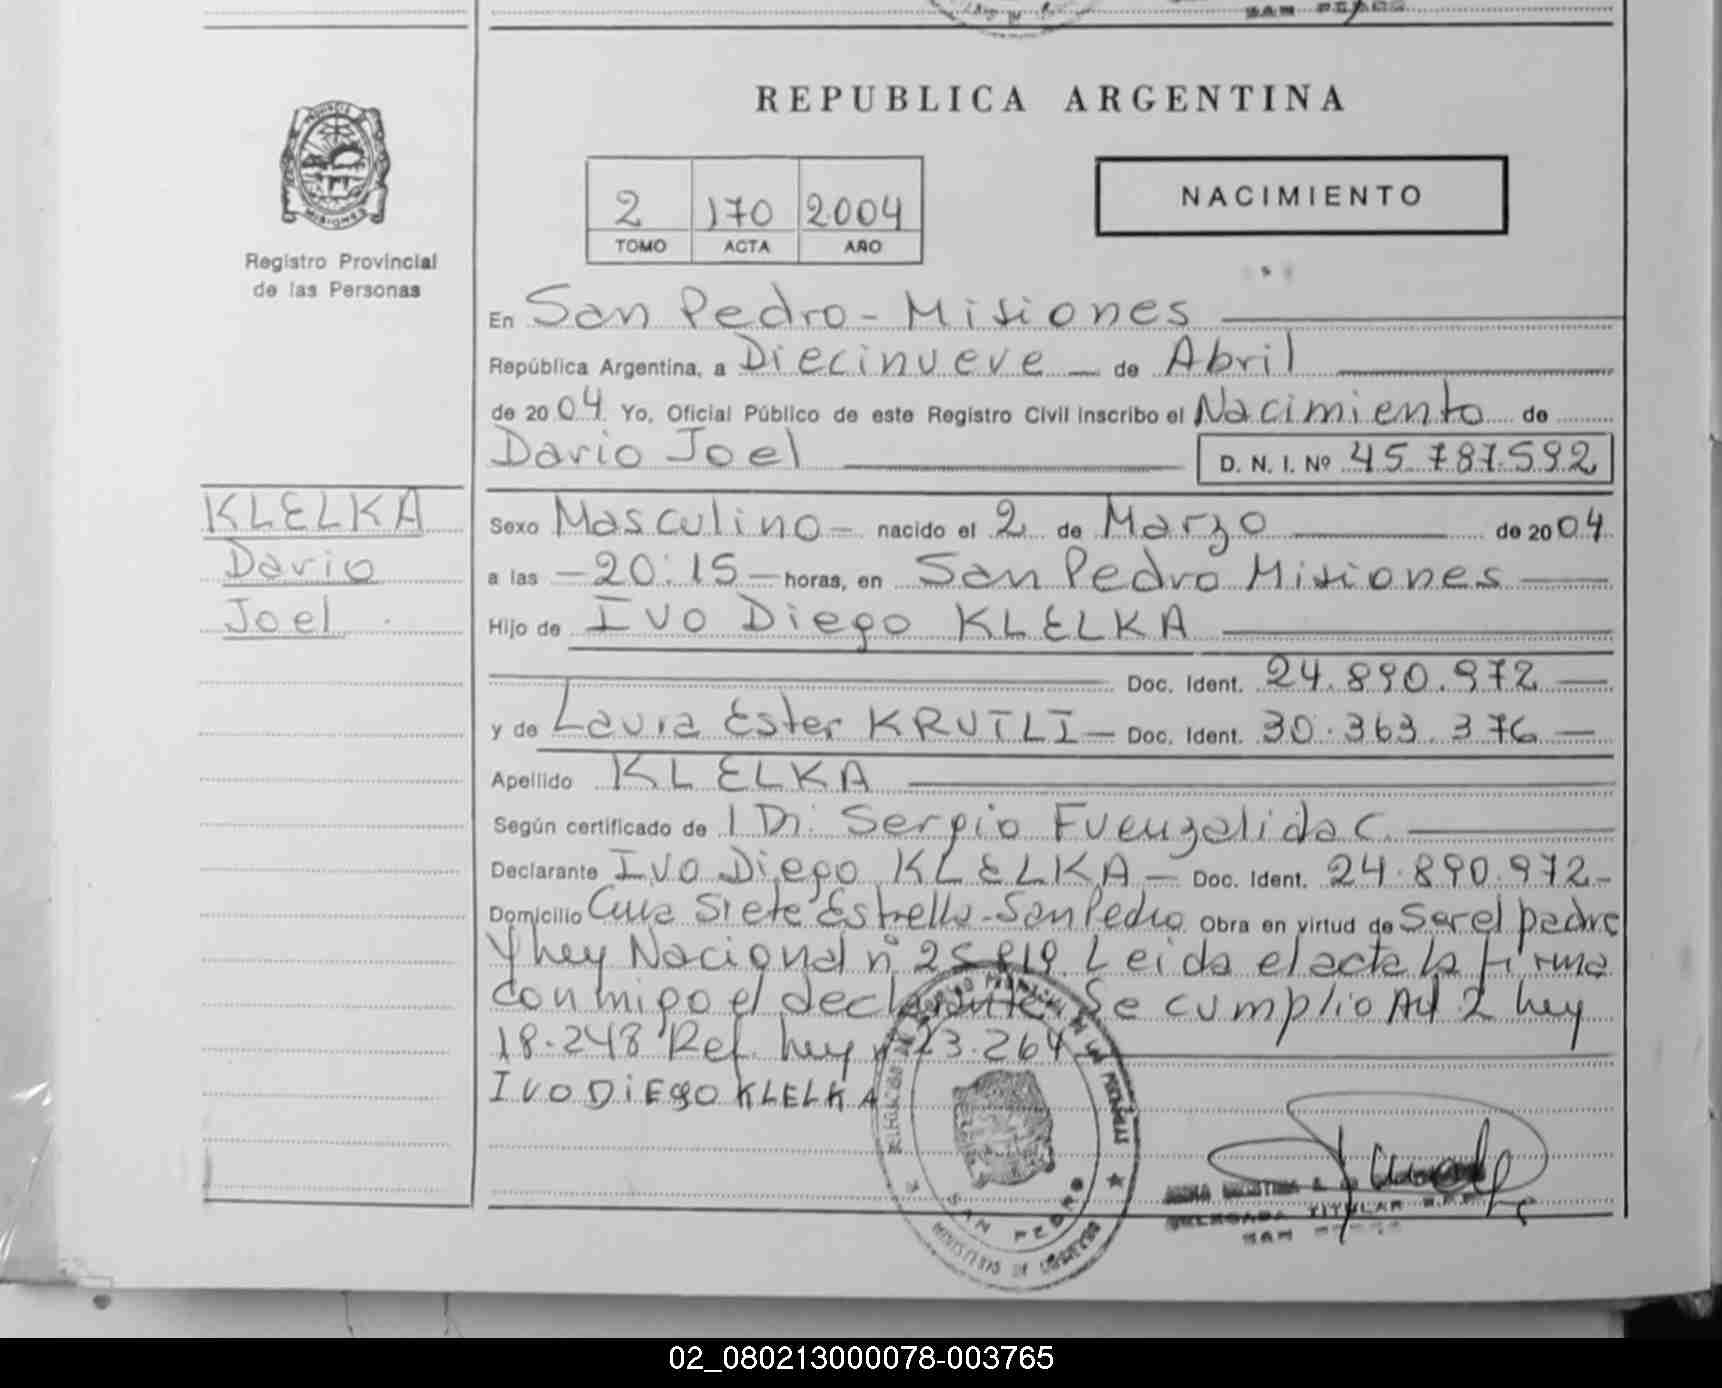 SAN PEDRO
REPUBLICA ARGENTINA
PROVINCIA
MISIONES
Registro Provincial
de las Personas
2 170 2004
TOMO ACTA AÑO
NACIMIENTO
En San Pedro - Misiones
República Argentina, a Diecinueve de Abril
de 2004 Yo, Oficial Público de este Registro Civil inscribo el Nacimiento de
Dario Joel D. N. I. Nº 45.787.592
KLELKA
Dario
Joel
Sexo Masculino - nacido el 2 de Marzo de 2004
a las - 20:15 - horas, en San Pedro Misiones
Hijo de Ivo Diego KLELKA
Doc. Ident. 24.890.972
y de Laura Ester KRUTLI - Doc. Ident. 30.363.376
Apellido KLELKA
Según certificado de Sergio Fuenzalida C.
Declarante Ivo Diego KLELKA - Doc. Ident. 24.890.972-
Domicilio Siete Estrellas - San Pedro Obra en virtud de Ser el padre
y ley Nacional nº 25.819 Leida el acta la firma
conmigo el declarante. Se cumplio Art 2 ley
18.248 Ref. ley nº 23.264
IVO DiEgO KLELKA
PROVINCIAL DE LAS PERSONAS
SAN PEDRO
MINISTERIO DE GOBIERNO
DELEGADA TITULAR R.P.P.
SAN PEDRO
02_080213000078-003765